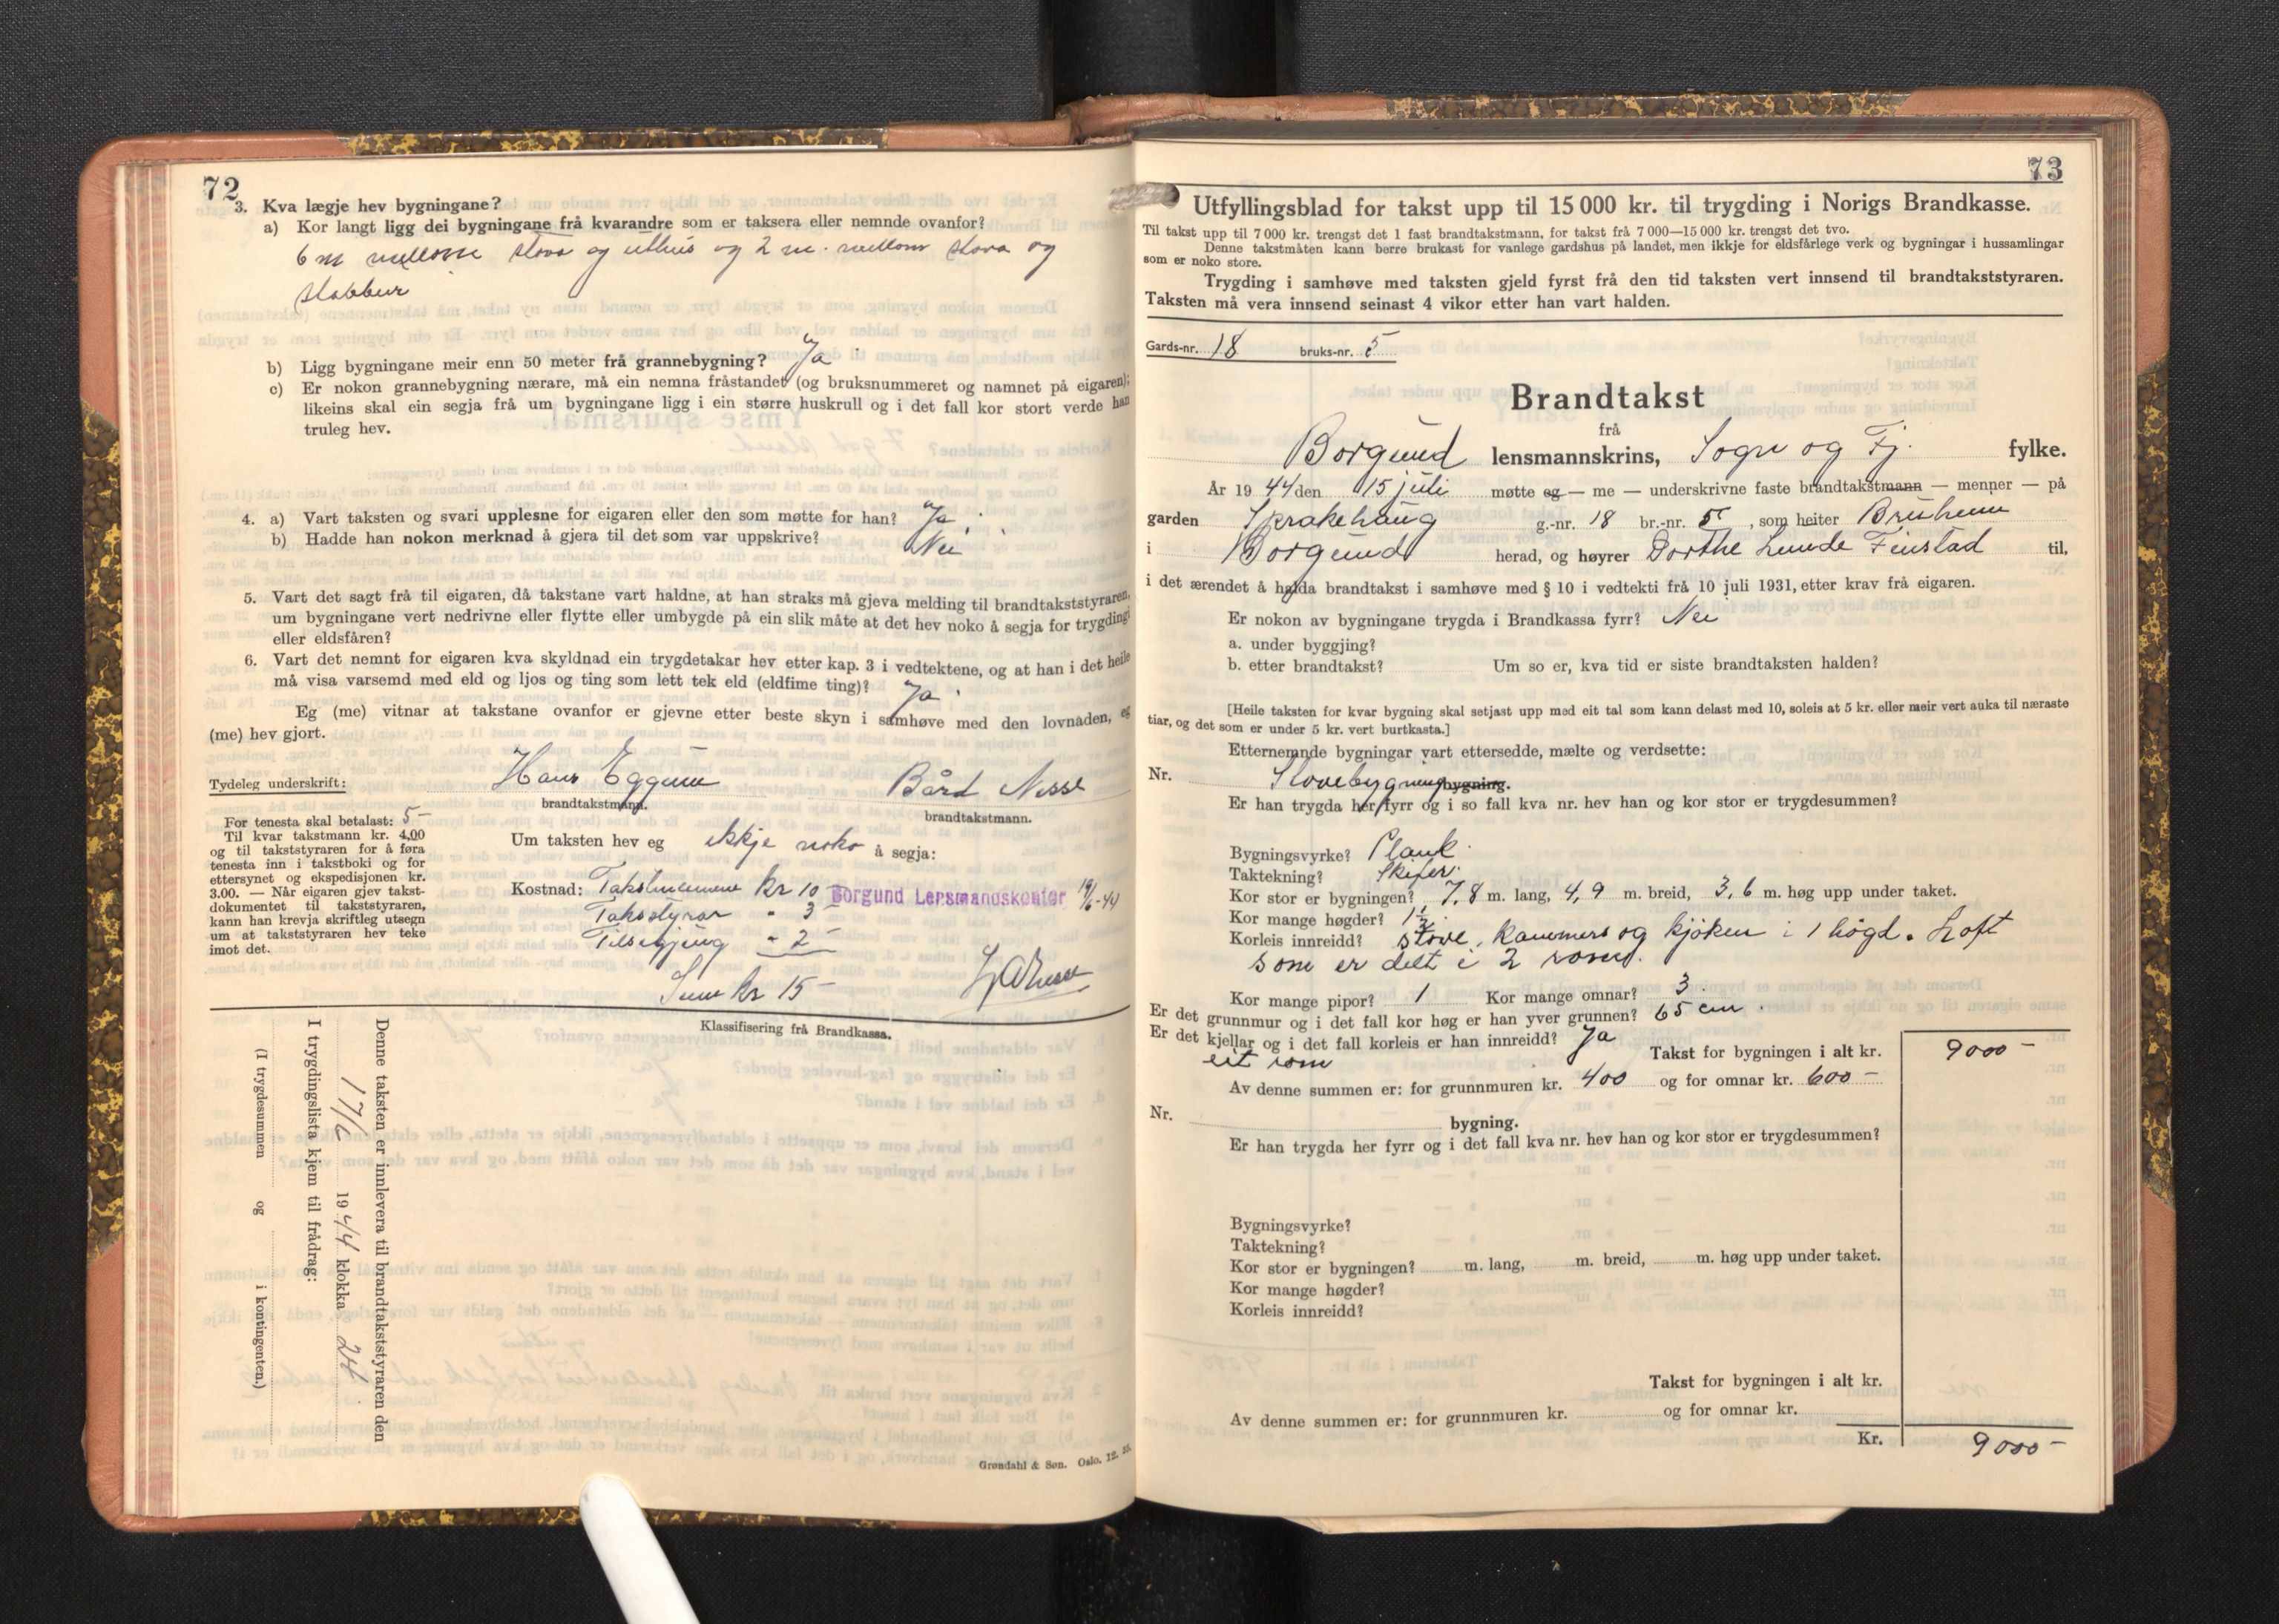 72
3. Kva lægje hev bygningane?
a) Kor langt ligg dei bygningane frå kvarandre som er taksera eller nemnde ovanfor?
6 m mellom stova og uthus og 2 m. mellom stova og
stabbur
b) Ligg bygningane meir enn 50 meter frå grannebygning? Ja
c) Er nokon grannebygning nærare, må ein nemna fråstandet (og bruksnummeret og namnet på eigaren);
likeins skal ein segja frå um bygningane ligg i ein større huskrull og i det fall kor stort verde han
truleg hev.
4. a) Vart taksten og svari upplesne for eigaren eller den som møtte for han? Ja.
b) Hadde han nokon merknad å gjera til det som var uppskrive? Nei
5. Vart det sagt frå til eigaren, då takstane vart haldne, at han straks må gjeva melding til brandtakststyraren,
um bygningane vert nedrivne eller flytte eller umbygde på ein slik måte at det hev noko å segja for trygdingi
eller eldsfåren?
6. Vart det nemnt for eigaren kva skyldnad ein trygdetakar hev etter kap. 3 i vedtektene, og at han i det heile
må visa varsemd med eld og ljos og ting som lett tek eld (eldfime ting)? Ja.
Eg (me) vitnar at takstane ovanfor er gjevne etter beste skyn i samhøve med den lovnaden, eg
(me) hev gjort.
Tydeleg underskrift: Hans Eggum Bård Nesse
brandtakstmann. brandtakstmann.
For tenesta skal betalast: 5-
Til kvar takstmann kr. 4,00
og til takststyraren for å føra
tenesta inn i takstboki og for
ettersynet og ekspedisjonen kr.
3.00. — Når eigaren gjev takst-
dokumentet til takststyraren,
kann han krevja skriftleg utsegn
um at takststyraren hev teke
imot det.
Um taksten hev eg ikkje noko å segja:
Kostnad: Takstmennene kr 10 - Borgund Lensmandskontor 19/6-44
Takststyrar " 3 -
" 2 -
Sum kr 15 -
Klassifisering frå Brandkassa.
Denne taksten er innlevera til brandtakststyraren den
17/6 1944 klokka 24
I trygdingslista kjem til frådrag:
(I trygdesummen og i kontingenten.)
Grøndahl & Søn. Oslo. 12. 35.
73
Utfyllingsblad for takst upp til 15 000 kr. til trygding i Norigs Brandkasse.
Til takst upp til 7 000 kr. trengst det 1 fast brandtakstmann, for takst frå 7 000—15 000 kr. trengst det tvo.
Denne takstmåten kann berre brukast for vanlege gardshus på landet, men ikkje for eldsfårlege verk og bygningar i hussamlingar
som er noko store.
Trygding i samhøve med taksten gjeld fyrst frå den tid taksten vert innsend til brandtakststyraren.
Taksten må vera innsend seinast 4 vikor etter han vart halden.
Gards-nr. 18 bruks-nr. 5
Brandtakst
frå
Borgund lensmannskrins, Sogn og Fj. fylke.
År 1944 den 15 juli møtte eg — me — underskrivne faste brandtakstmann — menner — på
garden Sprakehaug g.-nr. 18 br.-nr. 5, som heiter Bruheim
i Borgund herad, og høyrer Dorthe Lunde Finstad til,
i det ærendet å halda brandtakst i samhøve med § 10 i vedtekti frå 10 juli 1931, etter krav frå eigaren.
Er nokon av bygningane trygda i Brandkassa fyrr? Nei
a. under byggjing?
b. etter brandtakst? Um so er, kva tid er siste brandtaksten halden?
[Heile taksten for kvar bygning skal setjast upp med eit tal som kann delast med 10, soleis at 5 kr. eller meir vert auka til næraste
tiar, og det som er under 5 kr. vert burtkasta.]
Etternemnde bygningar vart ettersedde, mælte og verdsette:
Nr. Stovebygning bygning.
Er han trygda her fyrr og i so fall kva nr. hev han og kor stor er trygdesummen?
Bygningsvyrke? Plank
Taktekning? Skifer.
Kor stor er bygningen? 7,8 m. lang, 4,9 m. breid, 3,6 m. høg upp under taket.
Kor mange høgder? 1 1/2
Korleis innreidd? stove, kammers og kjøken i 1 høgd. Loft
som er delt i 2 rom.
Kor mange pipor? 1 Kor mange omnar? 3
Er det grunnmur og i det fall kor høg er han yver grunnen? 65 cm.
Er det kjellar og i det fall korleis er han innreidd? Ja
eit rom
Takst for bygningen i alt kr. 9000-
Av denne summen er: for grunnmuren kr. 400 og for omnar kr. 600-
Nr. bygning.
Er han trygda her fyrr og i det fall kva nr. hev han og kor stor er trygdesummen?
Bygningsvyrke?
Taktekning?
Kor stor er bygningen? m. lang, m. breid, m. høg upp under taket.
Kor mange høgder?
Korleis innreidd?
Takst for bygningen i alt kr.
Av denne summen er: for grunnmuren kr. og for omnar kr.
Kr. 9000-